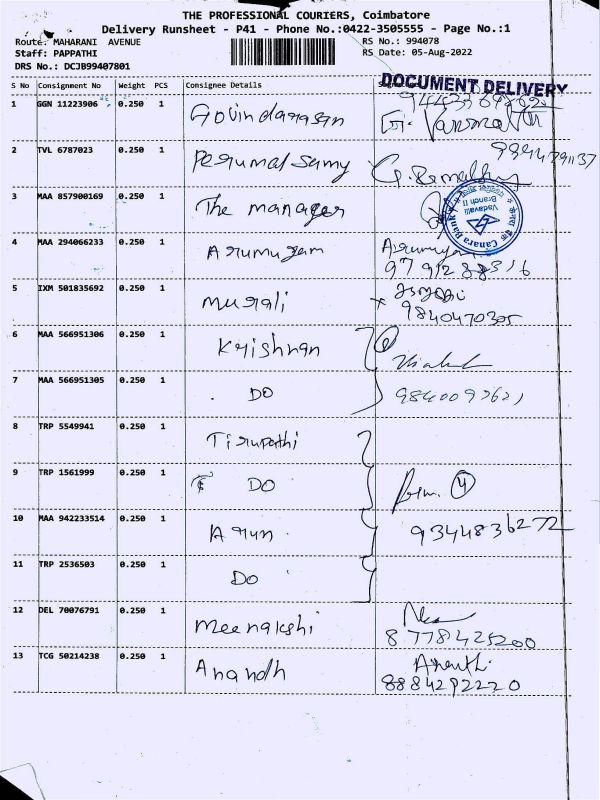 THE PROFESSIONAL COURIERS, Coimbatore
Delivery Runsheet - P41 - Phone No.:0422-3505555 - Page No.:1
Route: MAHARANI AVENUE
RS No.: 994078
Staff: PAPPATHI
RS Date: 05-Aug-2022
DRS No.: DCJB99407801
DOCUMENT DELIVERY
S No Consignment No Weight PCS Consignee Details
1 GGN 11223906 0.250 1 Govindarasan
2 TVL 6787023 0.250 1 Perumal Samy
3 MAA 857900169 0.250 1 The manager
Canara Bank
Vadavalli
Branch II
4 MAA 294066233 0.250 1 Arumugam
9791288316
5 IXM 501835692 0.250 1 Murali
9840470305
6 MAA 566951306 0.250 1 Krishnan
7 MAA 566951305 0.250 1 DO
8 TRP 5549941 0.250 1 Tirupathi
9 TRP 1561999 0.250 1 DO 4
10 MAA 942233514 0.250 1 Arun 9344836272
11 TRP 2536503 0.250 1 DO
12 DEL 70076791 0.250 1 Meenakshi
8778425200
13 TCG 50214238 0.250 1 Anandh
8884292220